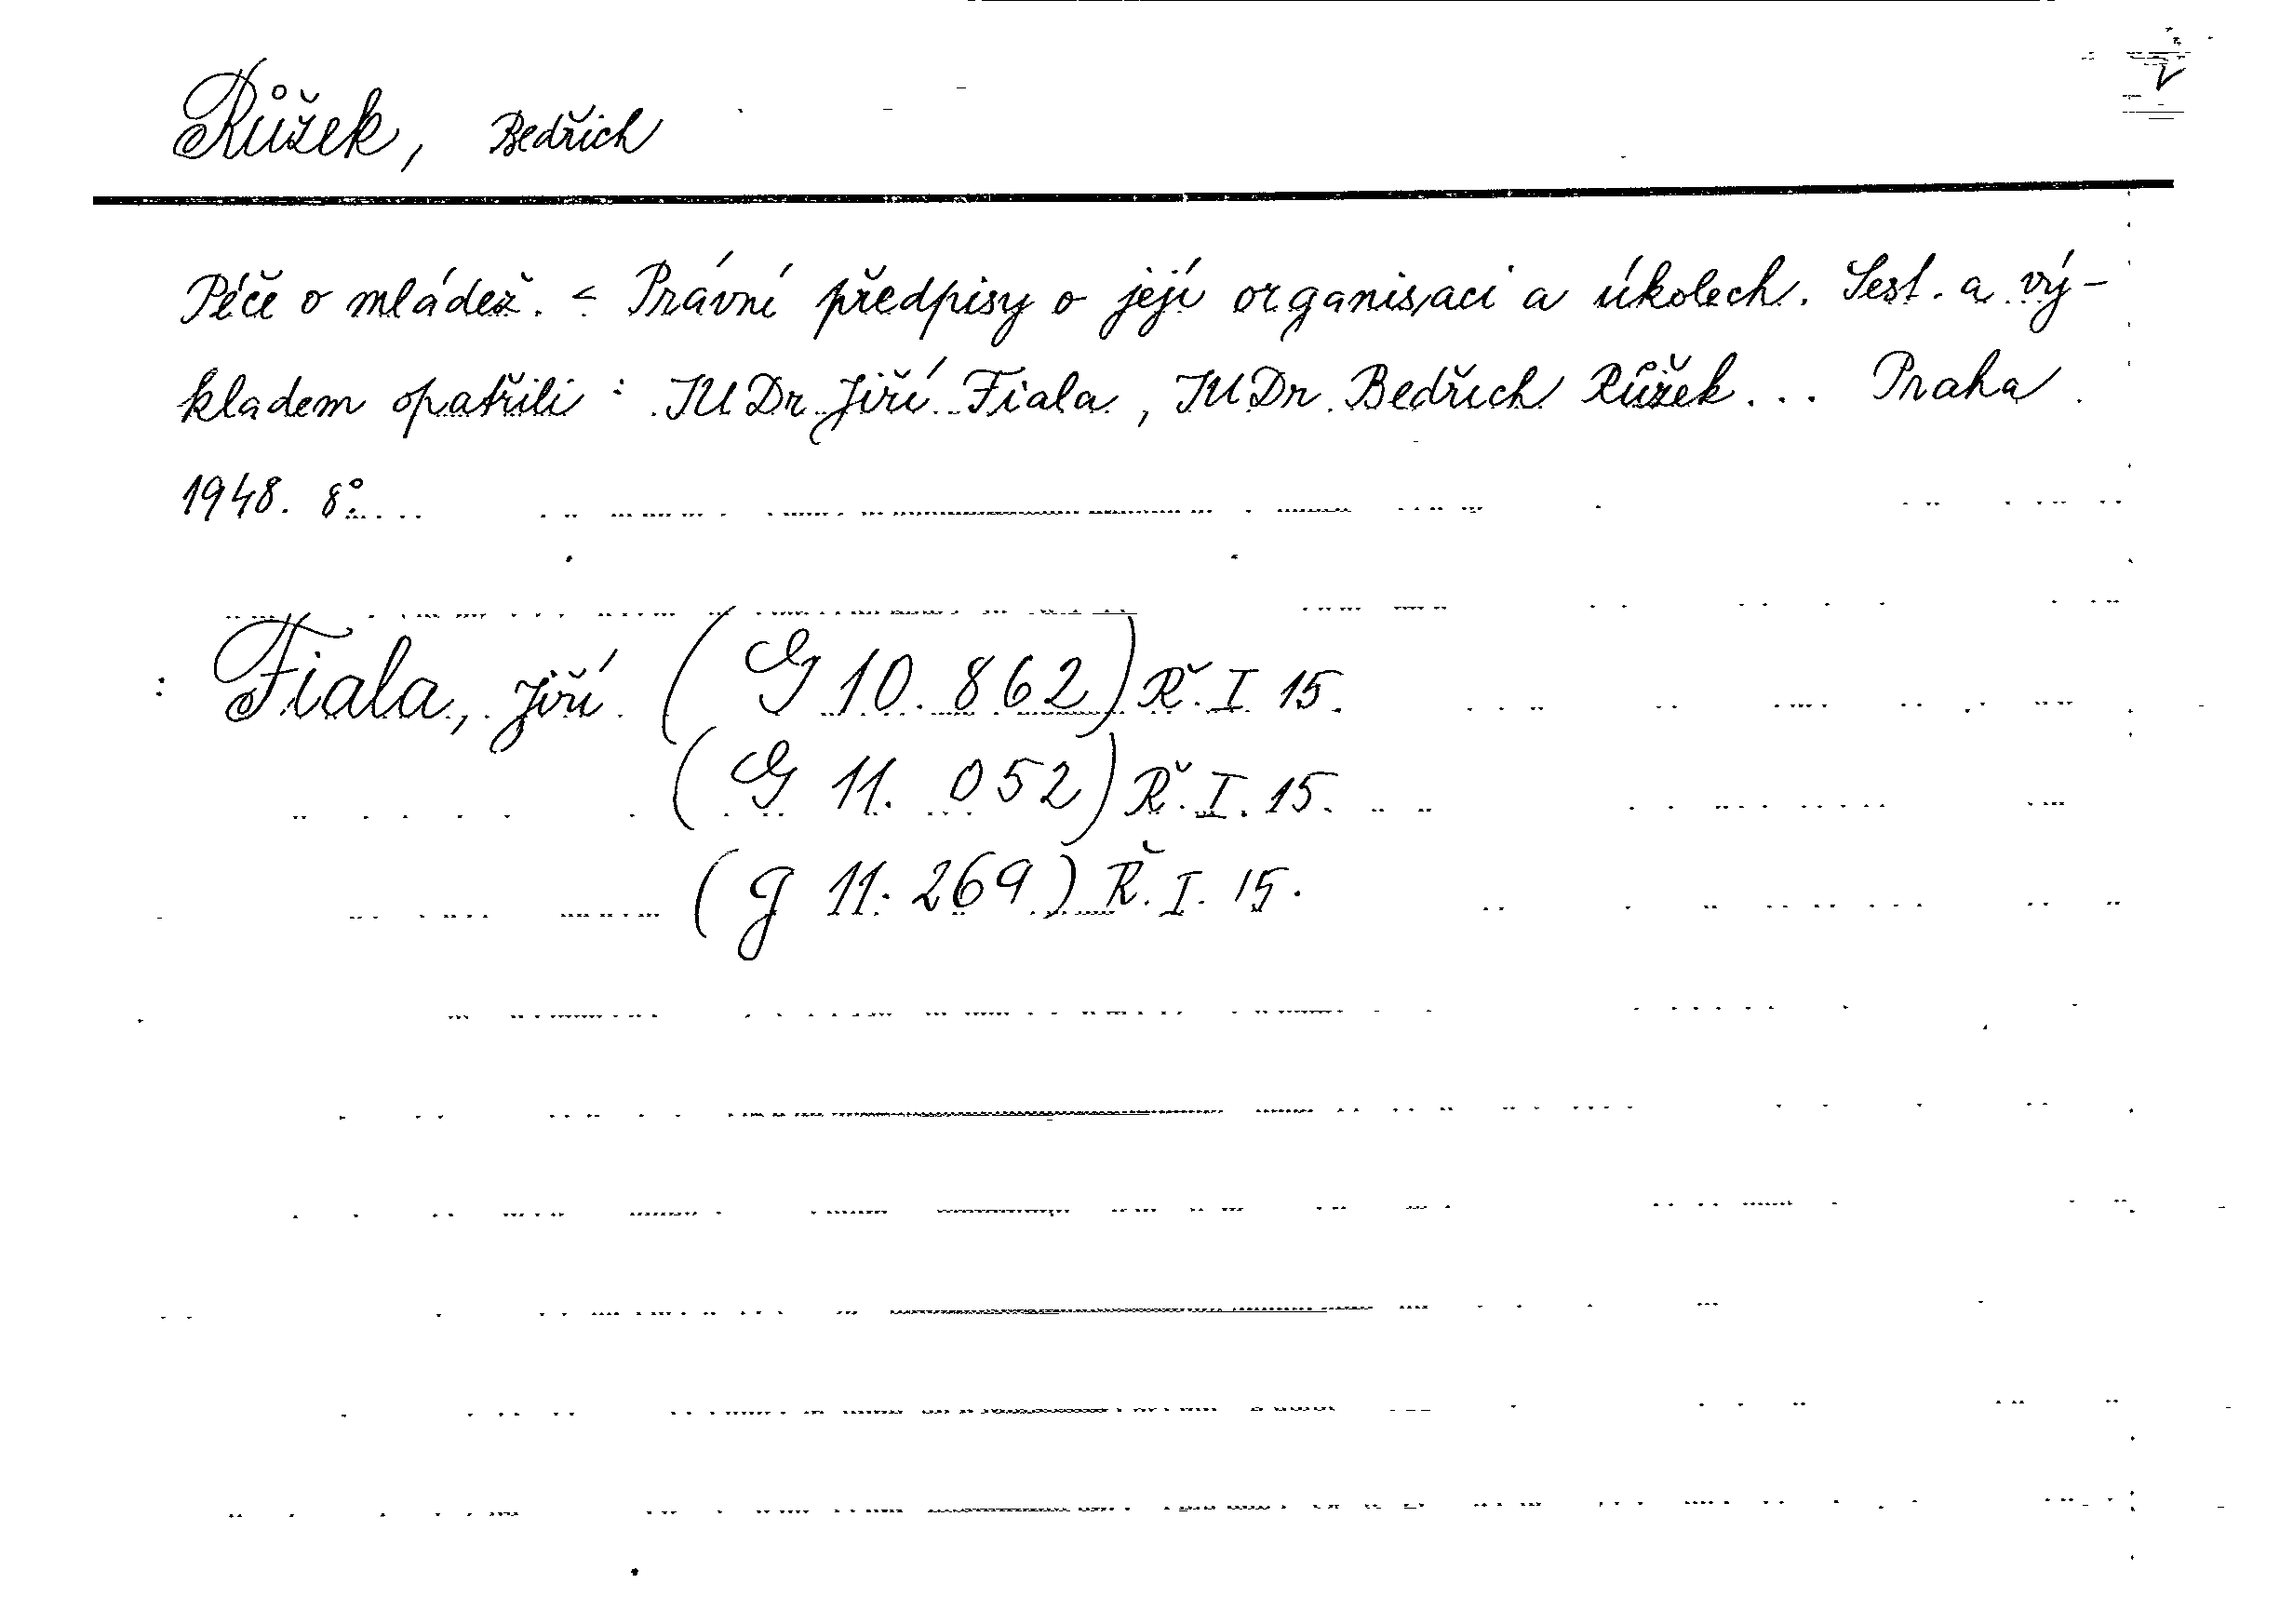 Růžek, Bedřich
Péče o mládež. < Právní předpisy o její organisaci a úkolech. Sest. a vý-
kladem opatřili: JUDr. Jiří Fiala, JUDr. Bedřich Růžek... Praha
1948. 8°.
: Fiala, Jiří (G 10.862) Ř. I. 15.
(G 11. 052) Ř. I. 15.
(g 11. 269) Ř. I. 15.